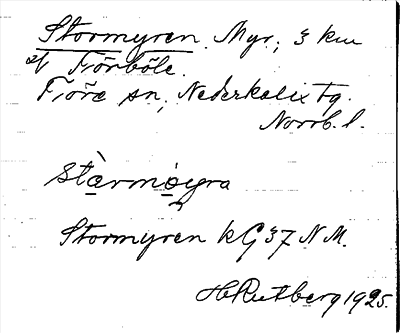 Stormyren. Myr; 3 km
af Förböle.
Töre sn, Nederkalix tg.
Norrb. l.
stɑ̀rmo̱yra
Stormyren kG 37 N M.
H Rutberg 1925.